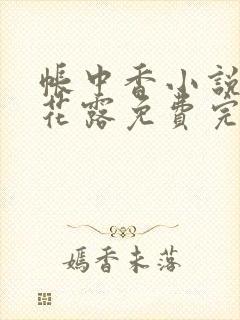 帐中香小説
花露免費完
嫣香未落